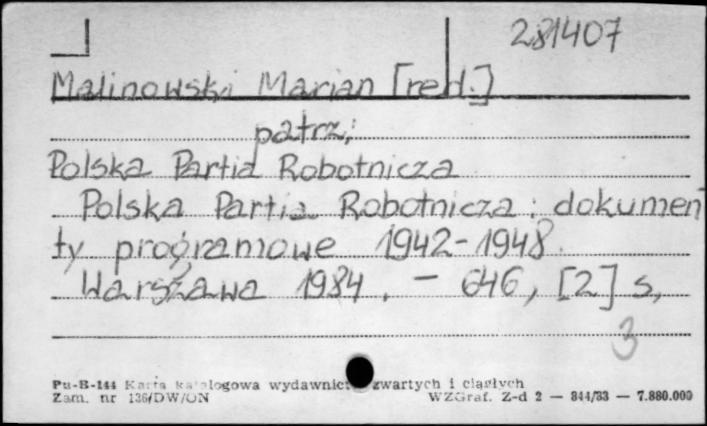 281407
Malinowski Marian [red.]
patrz:
Polska Partia Robotnicza
Polska Partia Robotnicza : dokumen
ty programowe 1942-1948.
Warszawa 1984. - 646, [2] s,
3
Pu-B-144 Karta katalogowa wydawnictw zwartych i ciągłych
Zam. nr 136/DW/ON WZGraf. Z-d 2 — 844/83 — 7.880.000